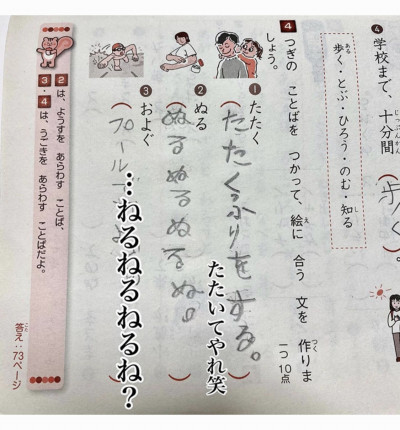 ④
学校まで、十分間
（歩く）。
歩く・とぶ・ひろう・のむ・知る
ある
し
4 つぎの ことばを つかって、絵に 合う 文を 作りま
しょう。
え
つく
一つ10点
❶ たたく
（たたくふりをする。）
たたいてやれ笑
❷ ぬる
（ぬるぬるぬるぬ。）
❸ およぐ
…ねるねるねるね？
2は、ようすを あらわす ことば、
3・4は、うごきを あらわす ことばだよ。
答え：73ページ
こた